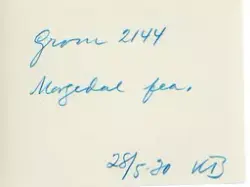 Grom 2144
Morgedal fea.
28/5-20 KB